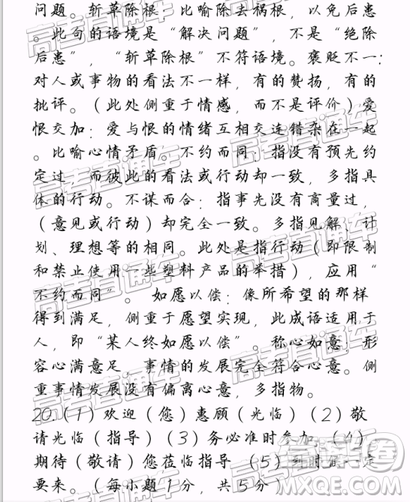 问题。斩草除根：比喻除去祸根，以免后患
。此句的语境是“解决问题”，不是“绝除
后患”，“斩草除根”不符语境。褒贬不一：
对人或事物的看法不一样，有的赞扬，有的
批评。（此处侧重于情感，而不是评价）爱
恨交加：爱与恨的情绪互相交连错杂在一起
。比喻心情矛盾。不约而同：指没有预先约
定过，而彼此的看法或行动却一致，多指具
体的行动。不谋而合：指事先没有商量过，
（意见或行动）却完全一致。多指见解、计
划、理想等的相同。此处是指行动（即限制
和禁止使用一些塑料产品的举措），应用“
不约而同”。 如愿以偿：像所希望的那样
得到满足，侧重于愿望实现，此成语适用于
人，即“某人终如愿以偿”。称心如意：形
容心满意足，事情的发展完全符合心意。侧
重事情发展没有偏离心意，多指物。
20.（1）欢迎（您）惠顾（光临）（2）敬
请光临（指导）（3）务必准时参加（4）
期待（敬请）您莅临指导（5）到时我一定
要来。（每小题1分，共5分）